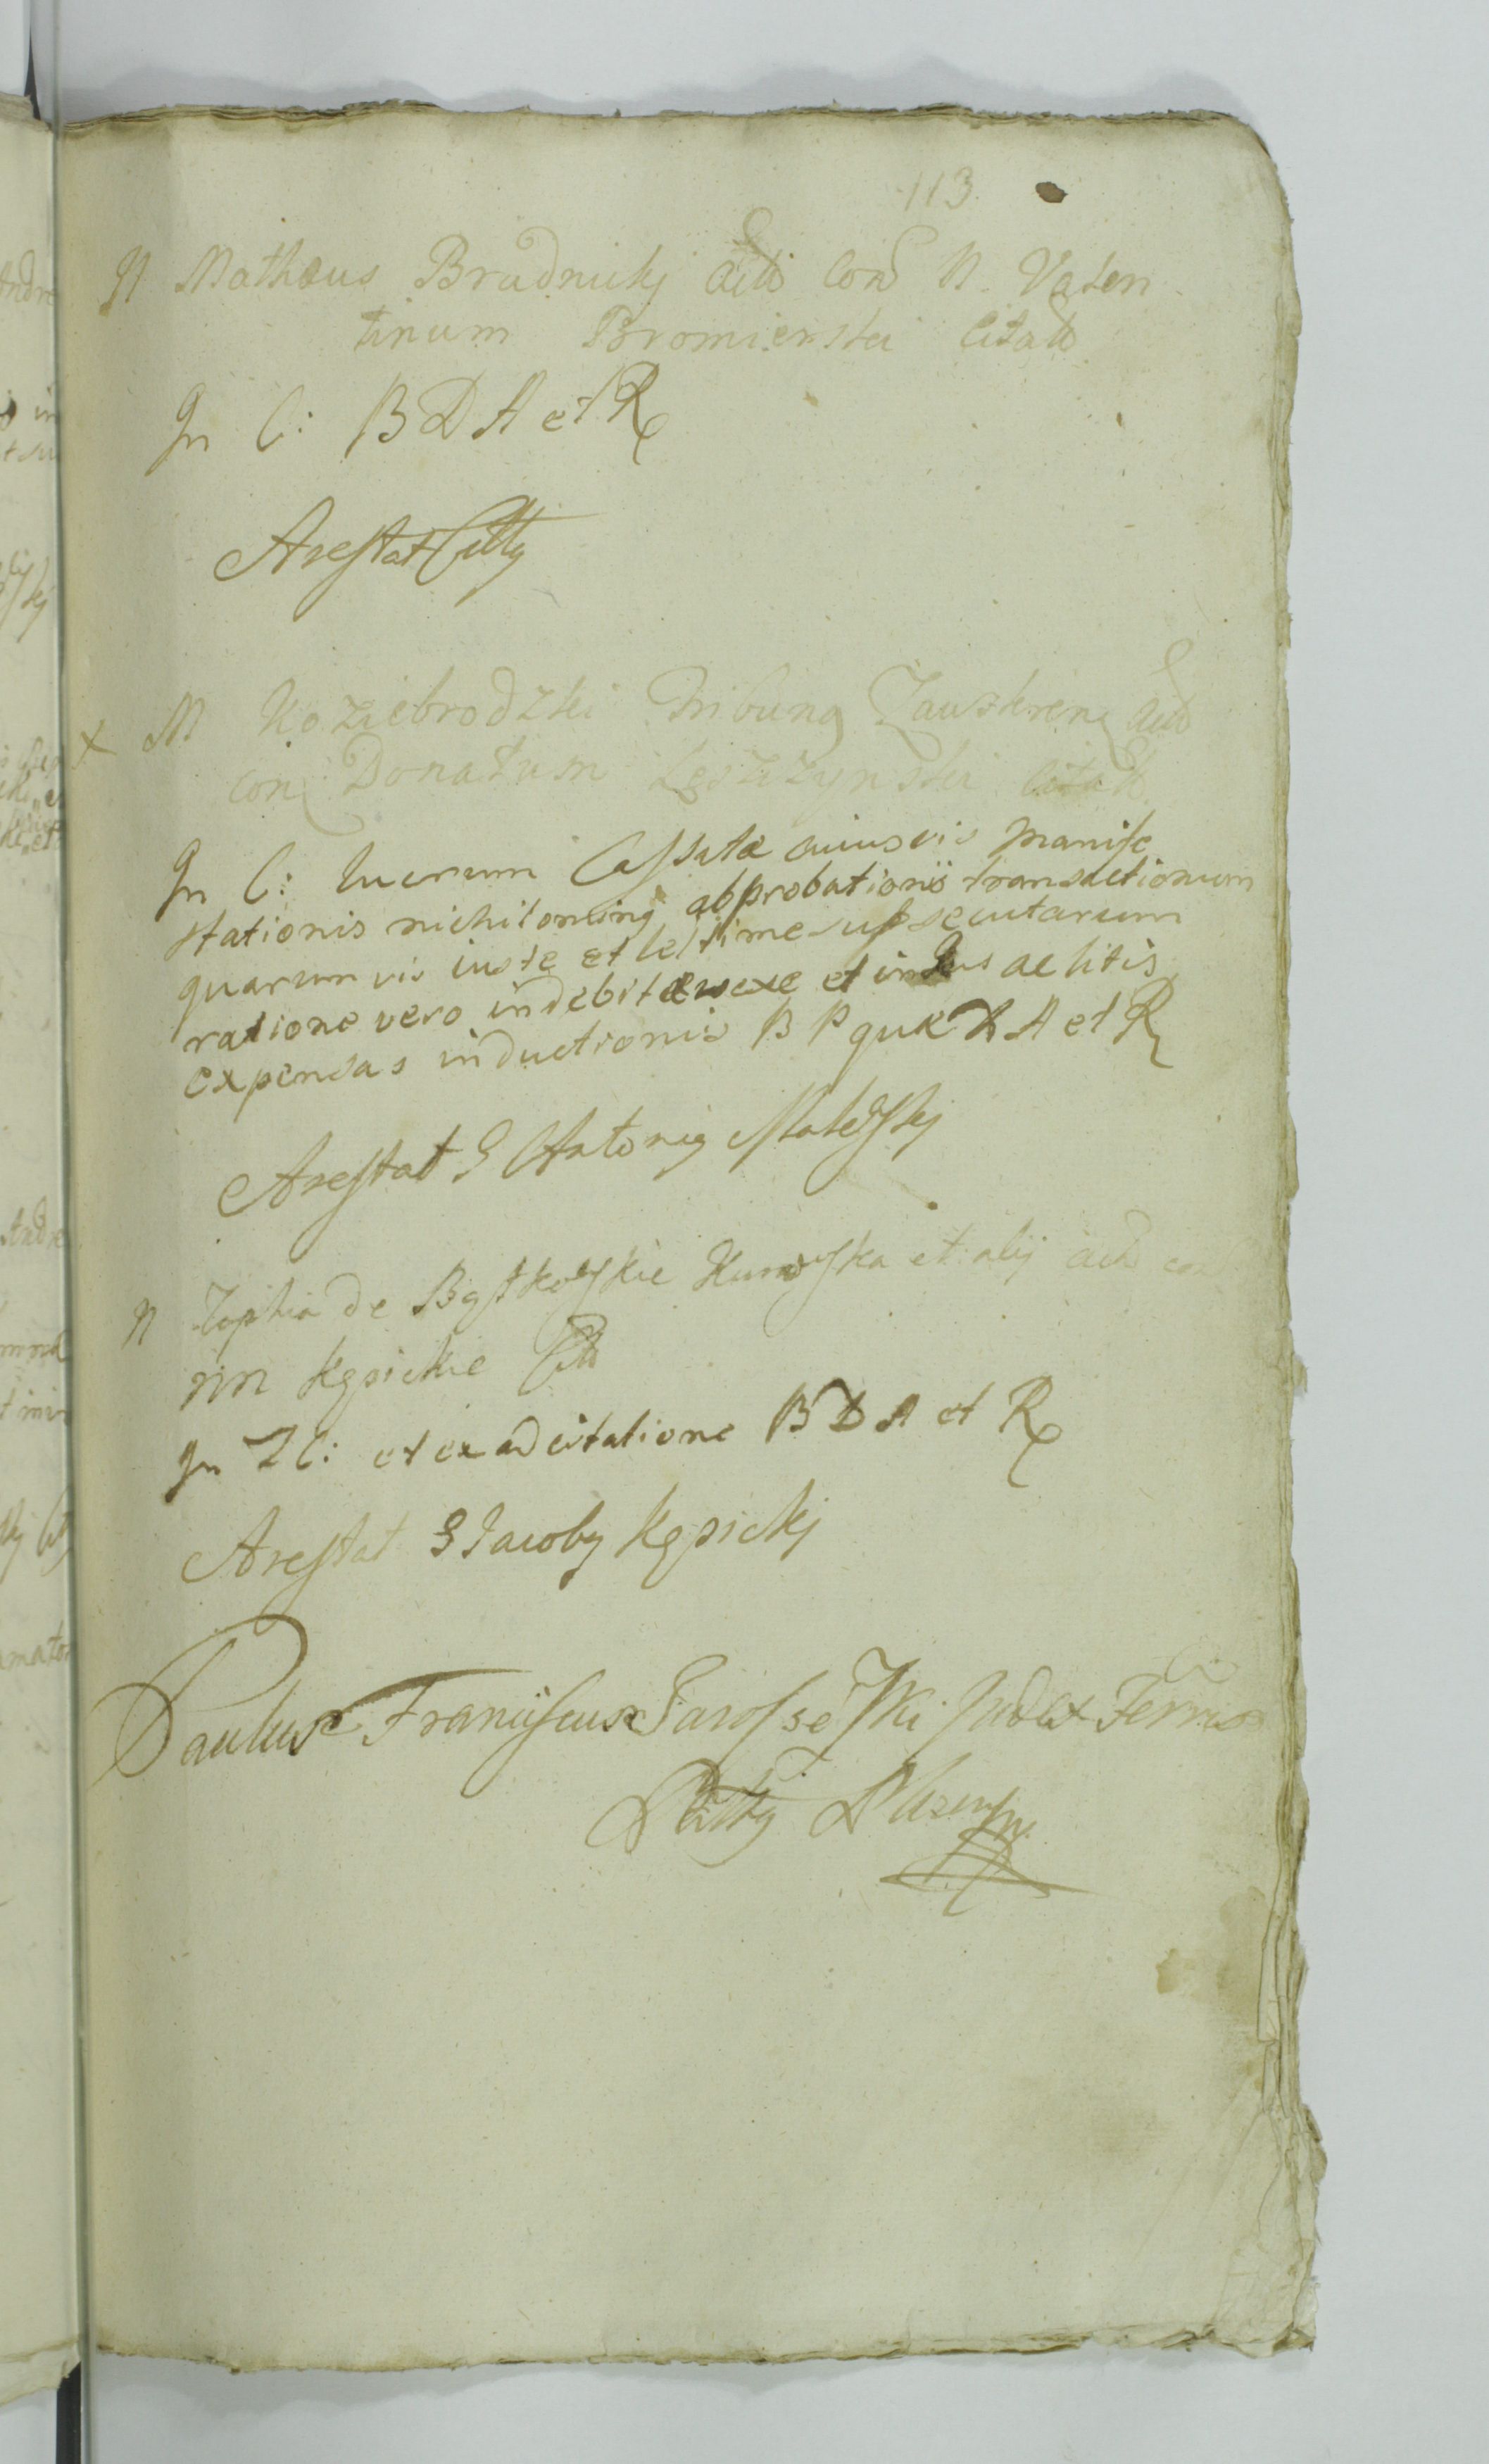 113
N Mathæus Brudnickj Actt con N. Valen
tinum Bromierski Citatt
In C: B D A et R
Arestat Citty
x M Koziebrodzki Tribung Zawskrens Actt
con Donatum Leszczynski Citatt
In C: lucrum Cassatæ cuiusvis manife
stationis nichiloming abprobationis transactionum
quarumvis iuste et leitime subsecutarum
ratione vero indebitæ vexæ et in ac litis
expensas inductionis B P quk D A et R
Arestat G Antonig
N Zophia de Kunowska et alij Actt con
NN Kępickie Citt
In 2 C: et ex adcitatione B D A et R
Arestat G Jacobg Kępickj
Paulus Franciscus Sarosse ski Judex Terris